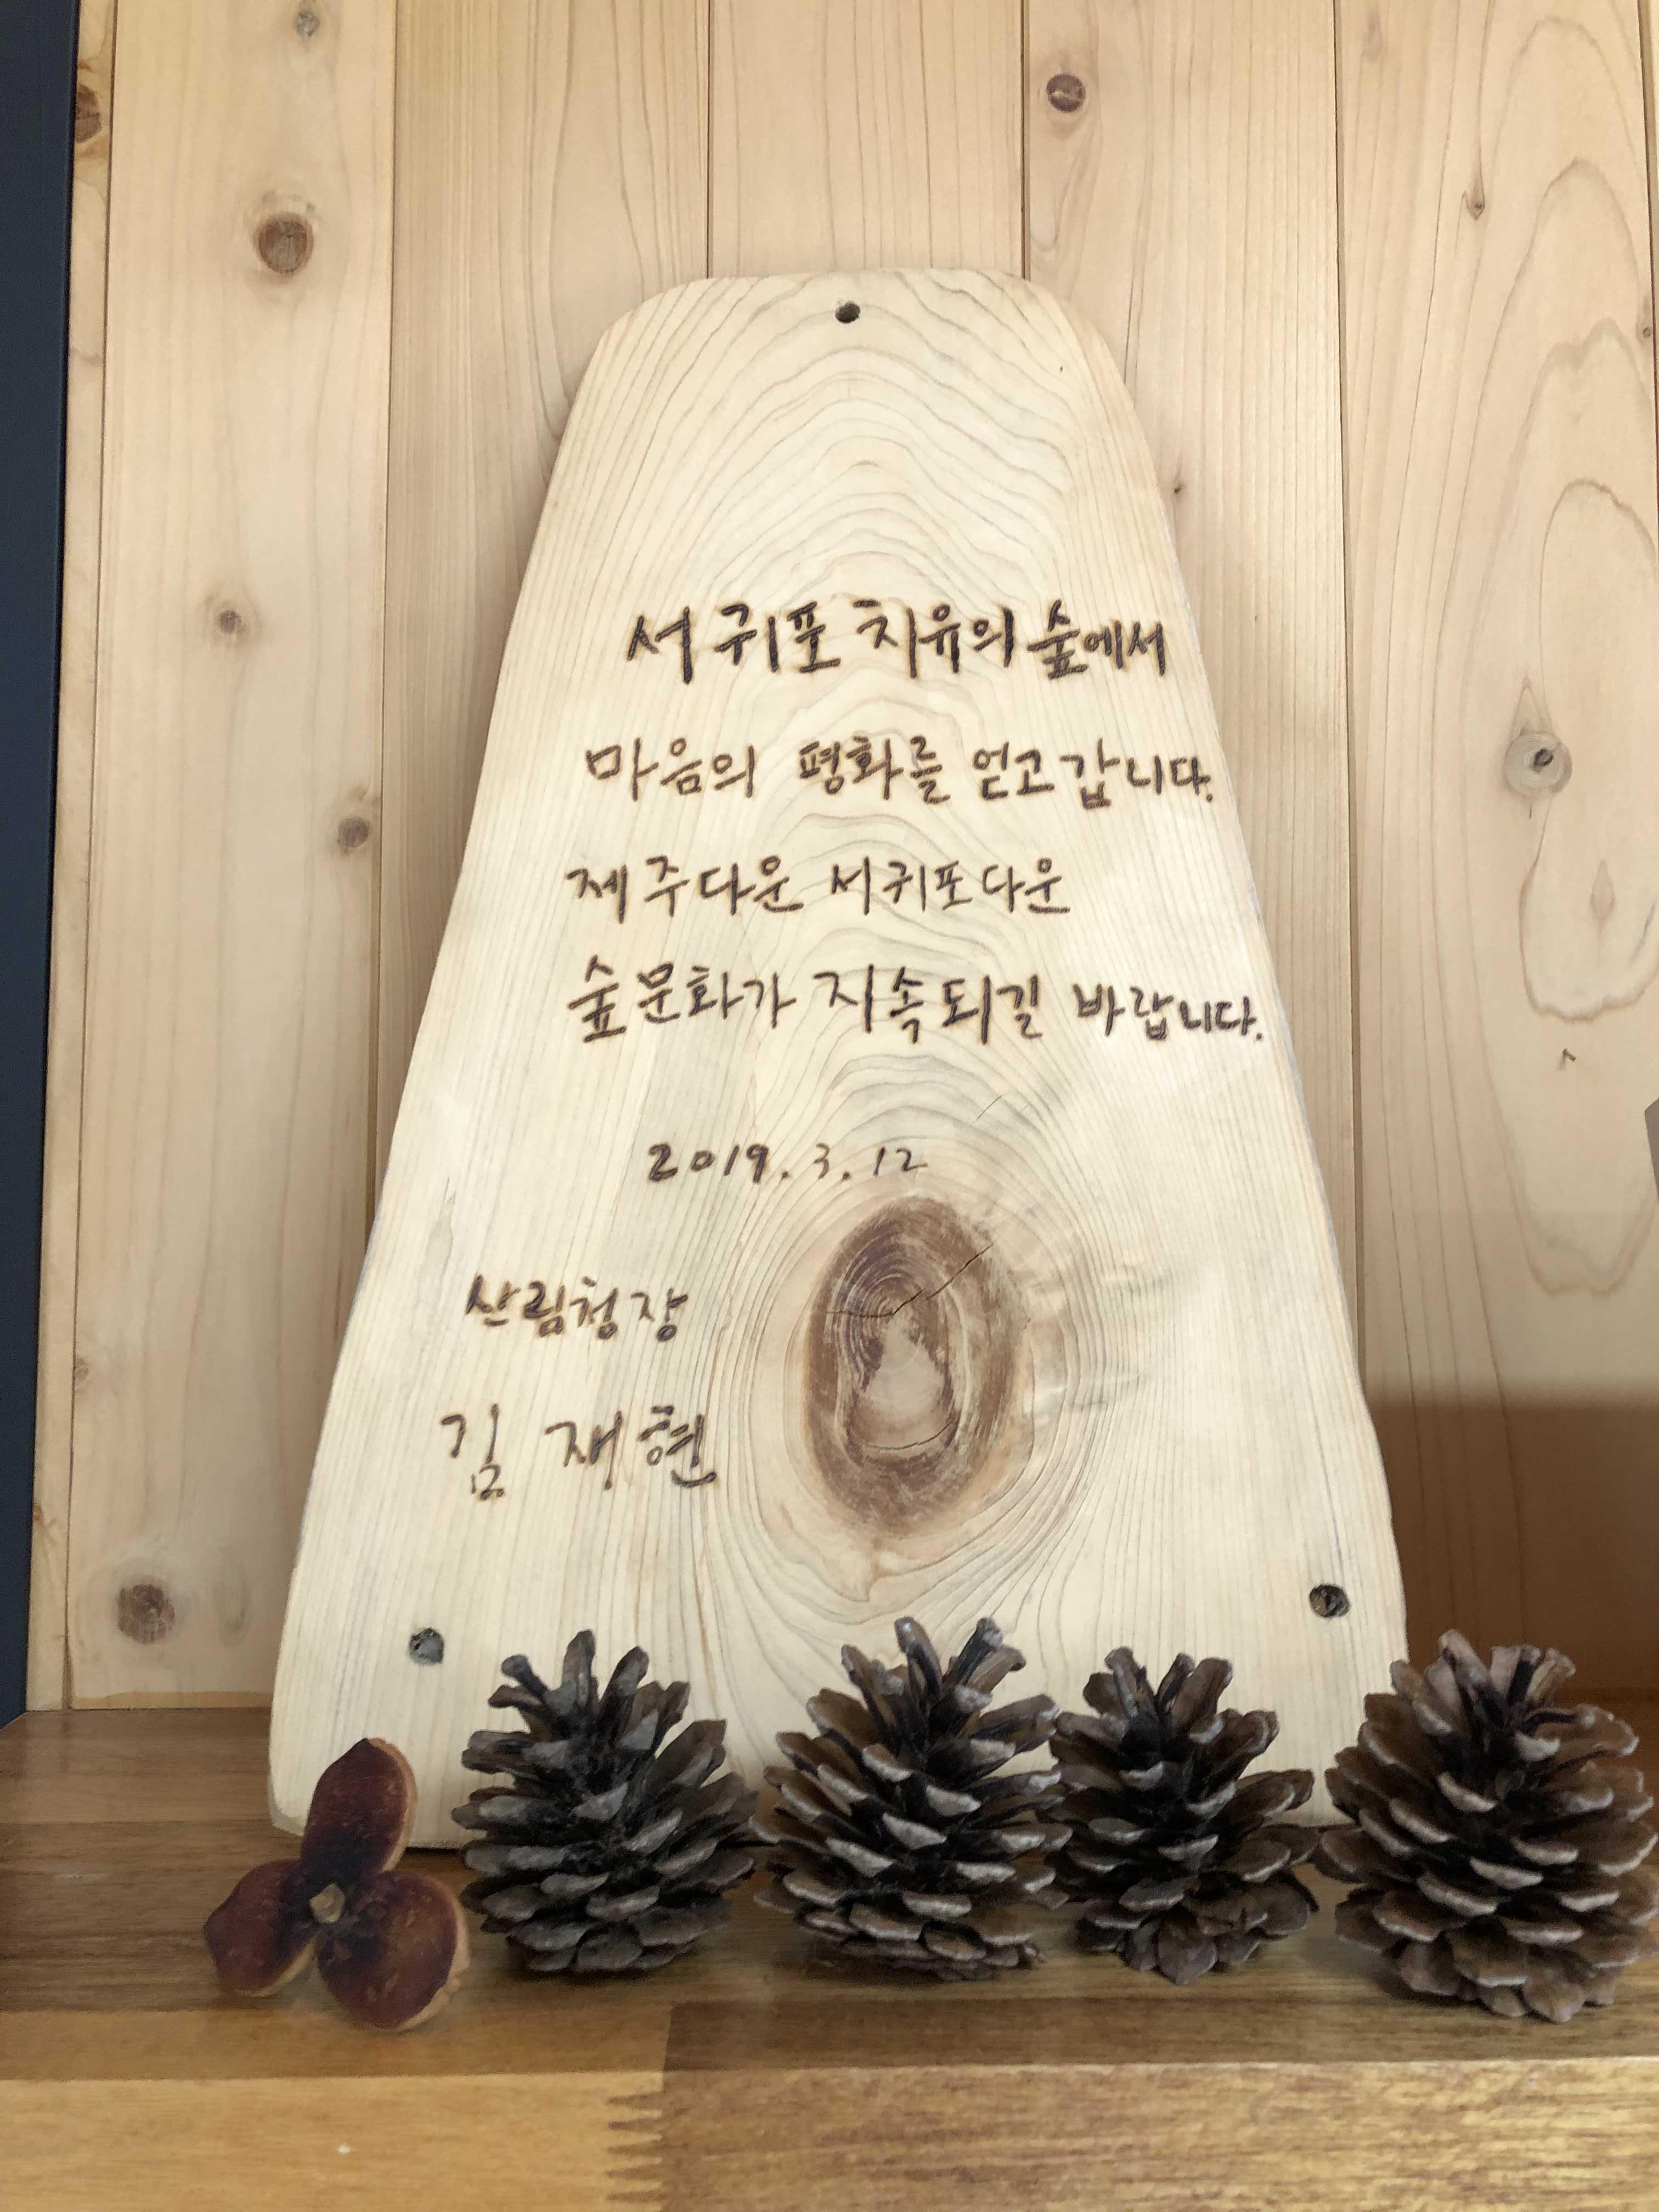 서귀포 치유의 숲에서
마음의 평화를 얻고 갑니다.
제주다운 서귀포다운
숲문화가 지속되길 바랍니다.
2019. 3. 12
산림청장
김 재현